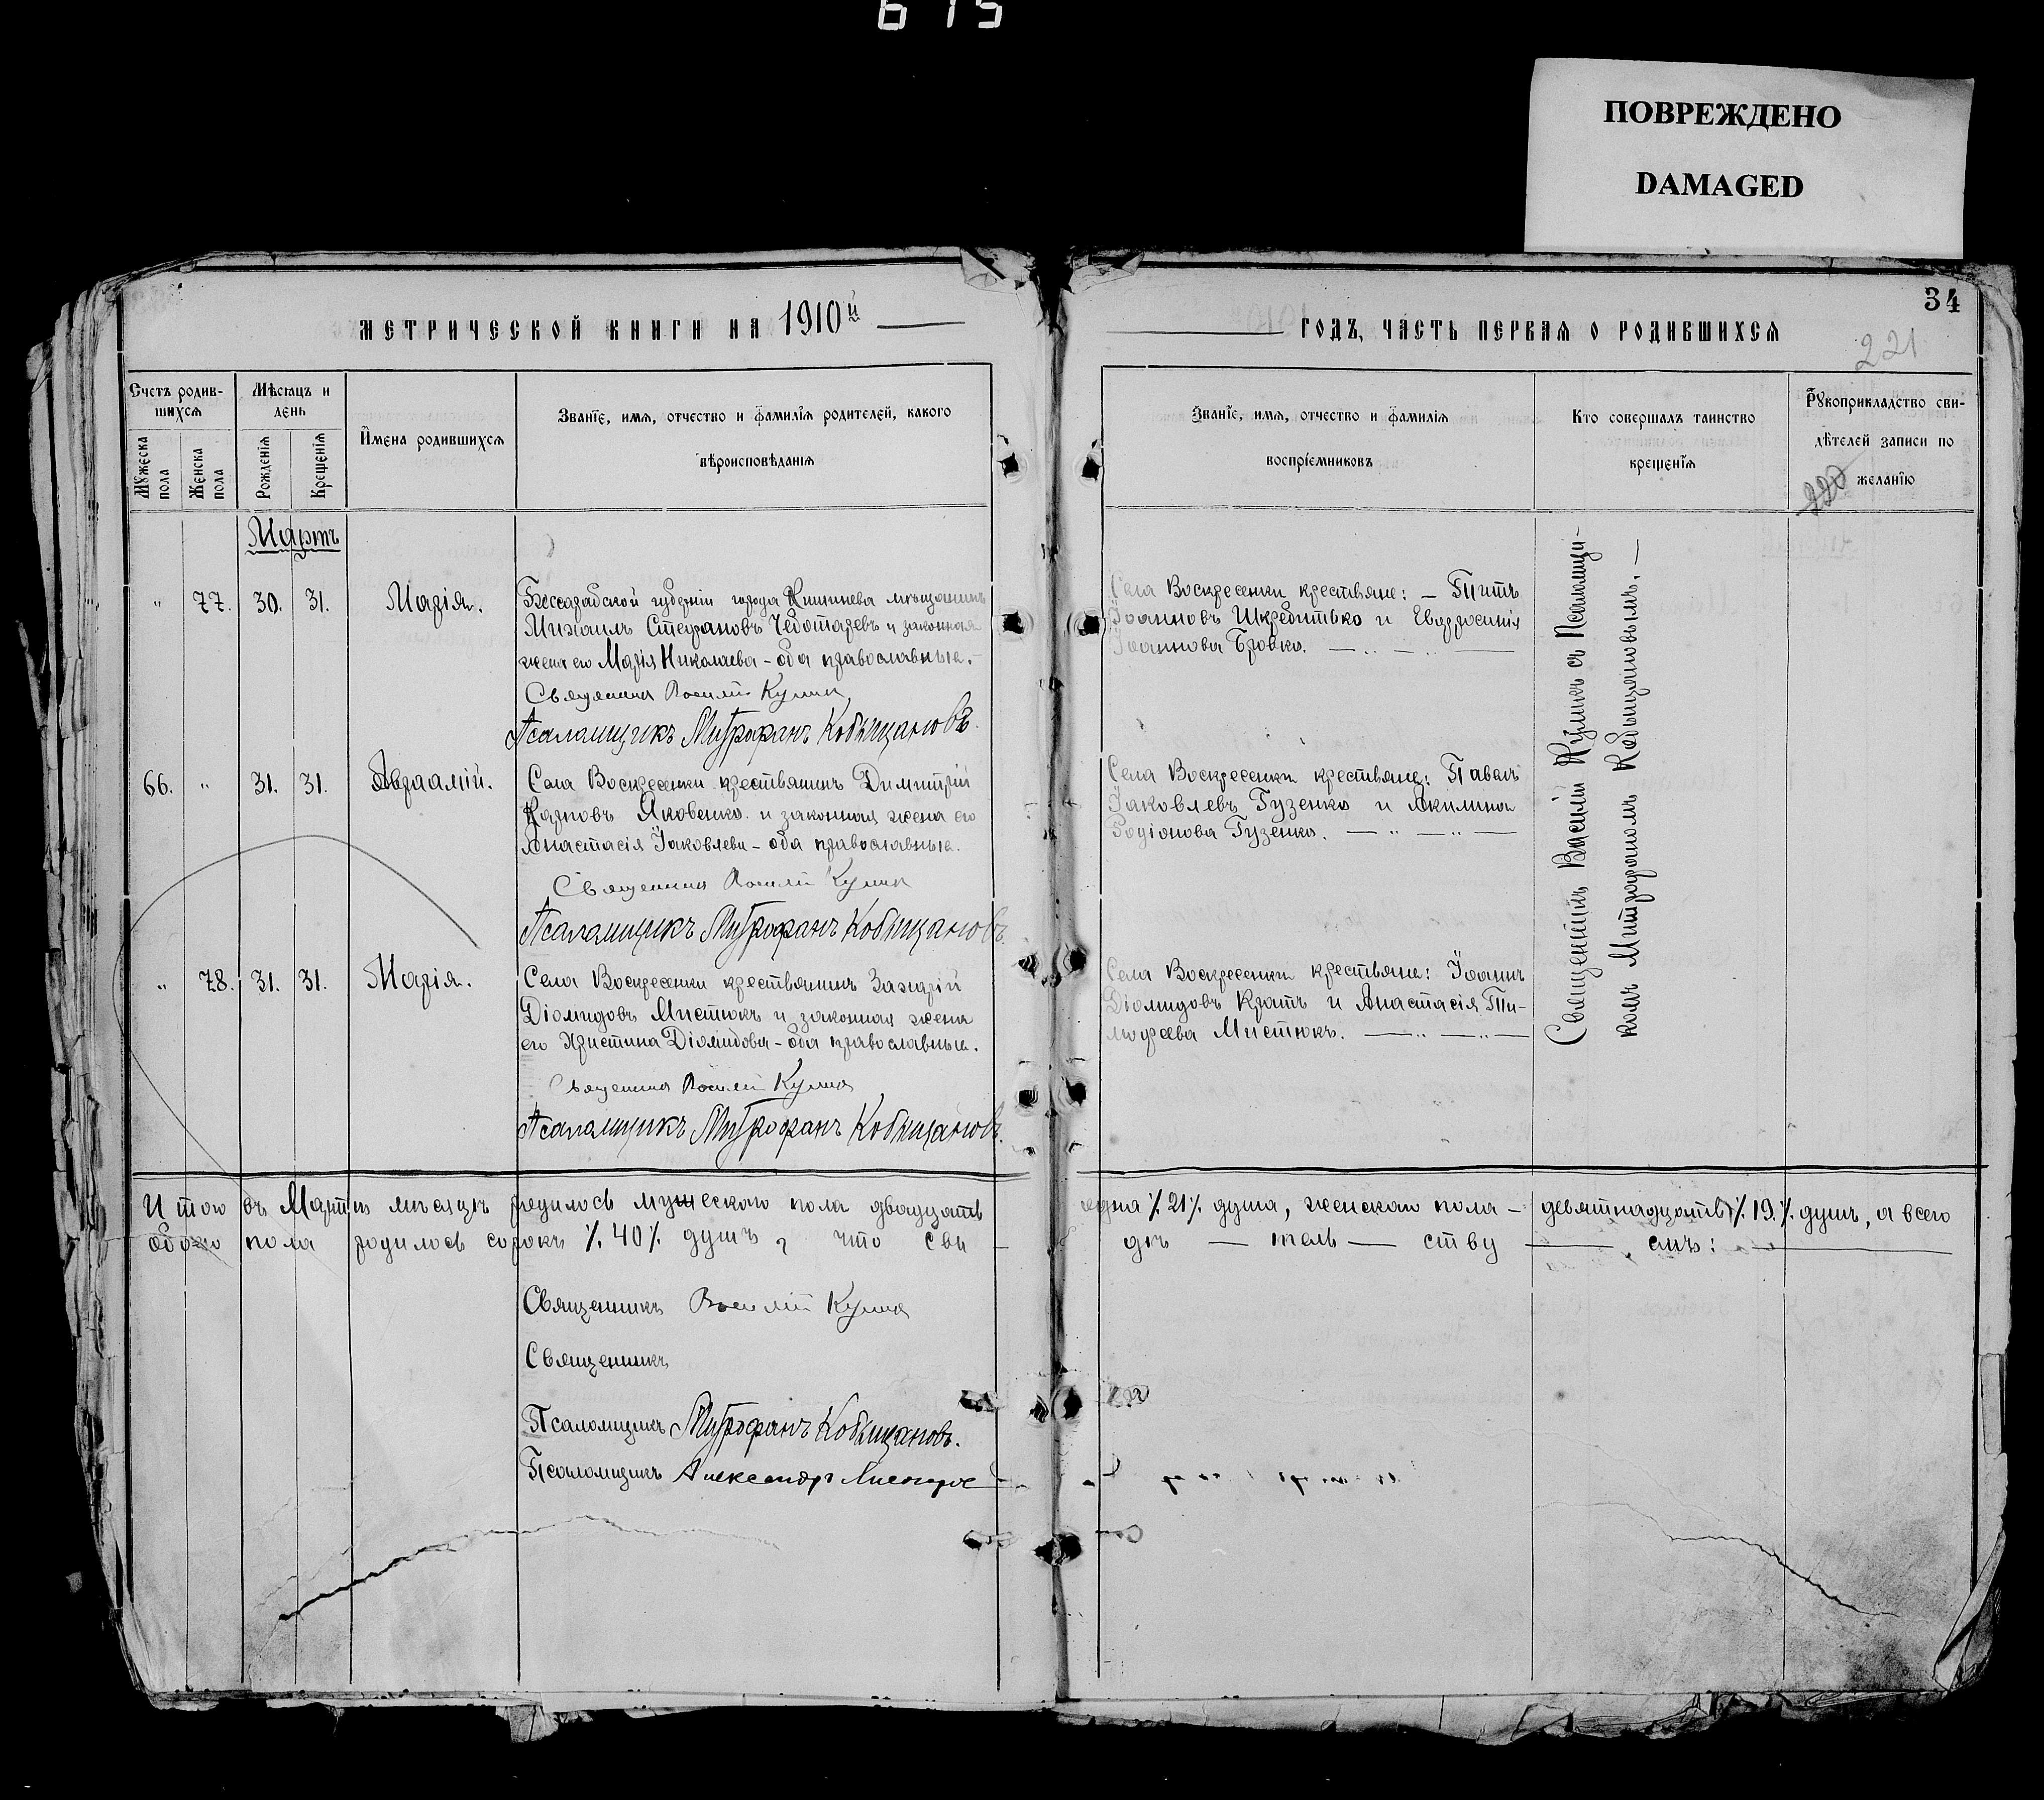 615
ПОВРЕЖДЕНО
DAMAGED
34
МЕТРИЧЕСКОЙ КНИГИ НА 1910й
ГОДЪ, ЧАСТЬ ПЕРВАЯ О РОДИВШИХСЯ
221
Счетъ родив-
шихся
Мужеска пола
Женска пола
Мѣсяцъ и
день
Рожденія
Крещенія
Имена родившихся
Званіе, имя, отчество и фамилія родителей, какого
вѣроисповѣданія
Званіе, имя, отчество и фамилія
воспріемниковъ
Кто совершалъ таинство
крещенія
Рукоприкладство сви-
дѣтелей записи по
желанію
220
Мартъ
" 77. 30. 31. Марія.
Бессарабской губерніи города Кишинева мѣщанинъ
Михаилъ Стефановъ Чеботаревъ и законная
жена его Марія Николаева - оба православные.
Священникъ Василій Куликъ
Псаломщикъ Митрофанъ Кобыщановъ.
Села Воскресенки крестьяне: — Титъ
Іоанновъ Шкребитько и Евфросинія
Іоаннова Бровко.
66. " 31. 31. Авраамій.
Села Воскресенки крестьянинъ Димитрій
Карповъ Яковенко и законная жена его
Анастасія Іаковлева - оба православные.
Священникъ Василій Куликъ
Псаломщикъ Митрофанъ Кобыщановъ.
Села Воскресенки крестьяне: Павелъ
Іаковлевъ Гузенко и Акилина
Родіонова Гузенко.
" 78. 31. 31. Марія.
Села Воскресенки крестьянинъ Захарій
Діомидовъ Мистюкъ и законная жена
его Христина Діомидова - оба православные.
Священникъ Василій Куликъ
Псаломщикъ Митрофанъ Кобыщановъ.
Села Воскресенки крестьяне: Іоаннъ
Діомидовъ Кратъ и Анастасія Ти-
моѳеева Мистюкъ.
Священникъ Василій Куликъ съ Псаломщи-
комъ Митрофаномъ Кобыщановымъ. —
Итого въ Мартѣ мѣсяцѣ родилось мужескаго пола двадцать одна %21% душа, женскаго пола — девятнадцать %19.% душъ, а всего
обоего пола родилось сорокъ %40% душъ, что сви — дѣ — тель — ству — емъ:
Священникъ Василій Куликъ
Священникъ
Псаломщикъ Митрофанъ Кобыщановъ.
Псаломщикъ Александръ